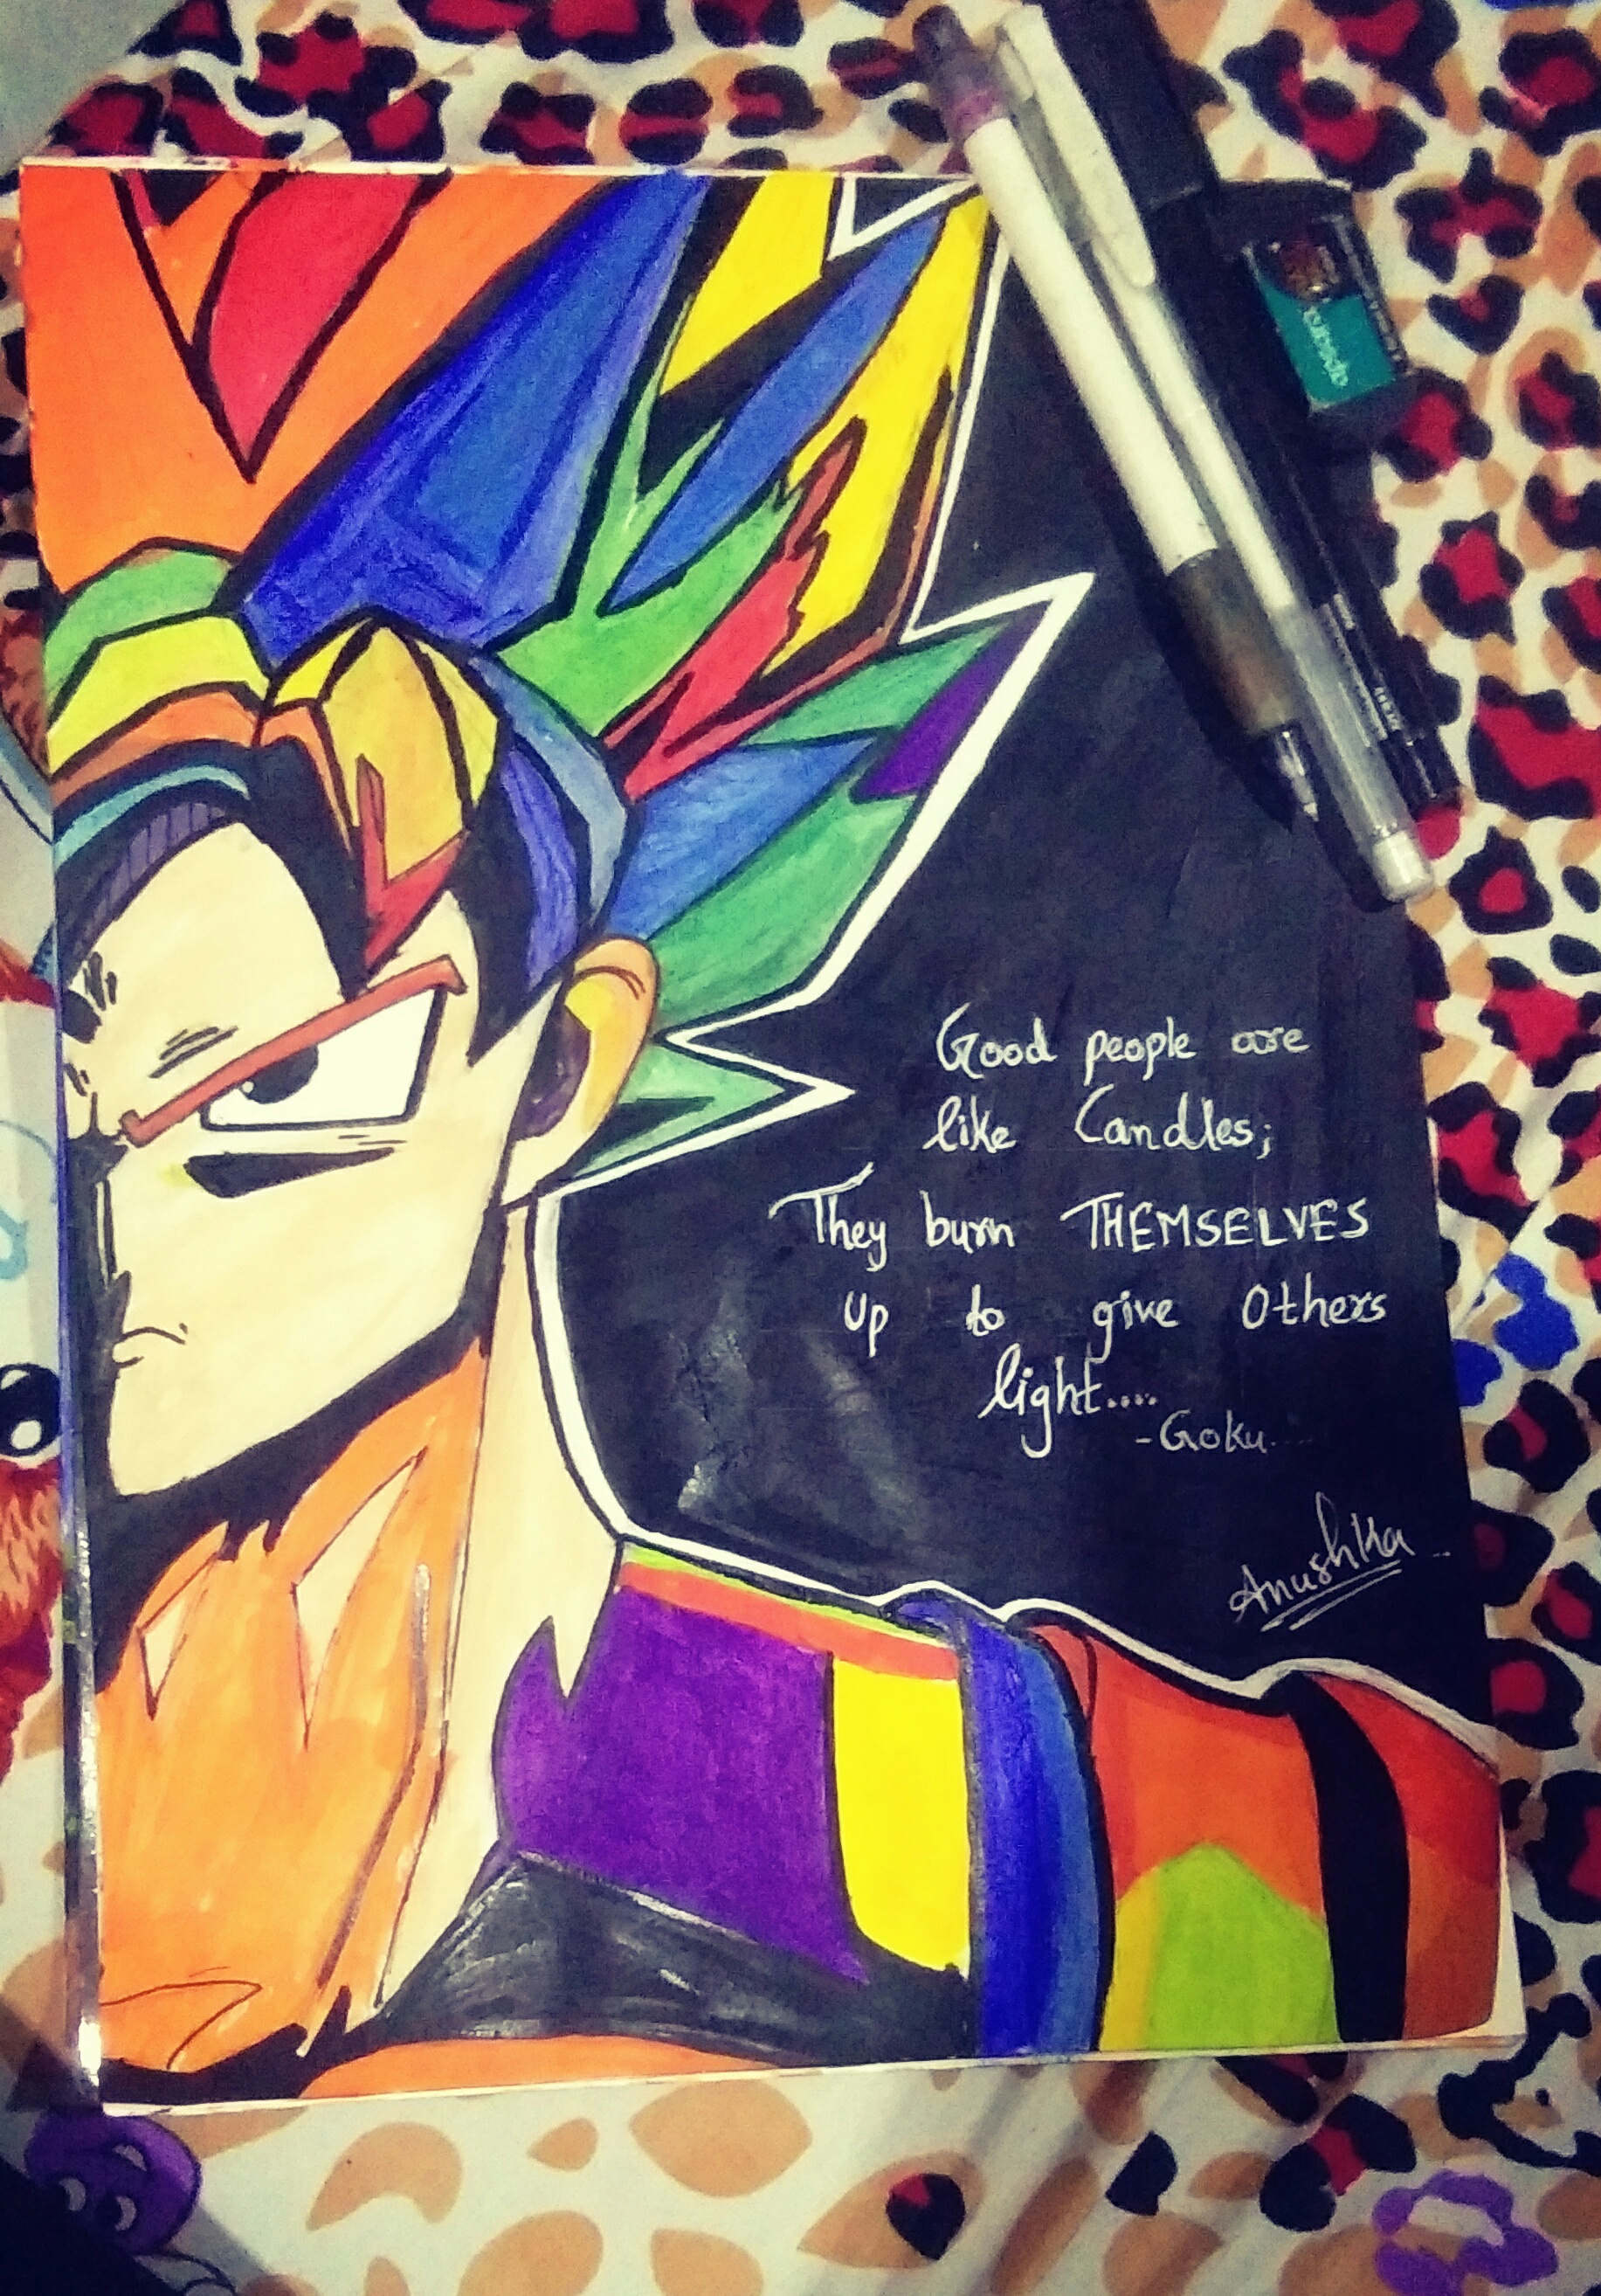 Good people are
like Candles;
They burn THEMSELVES
up to give Others
light....
-Goku
Anushka